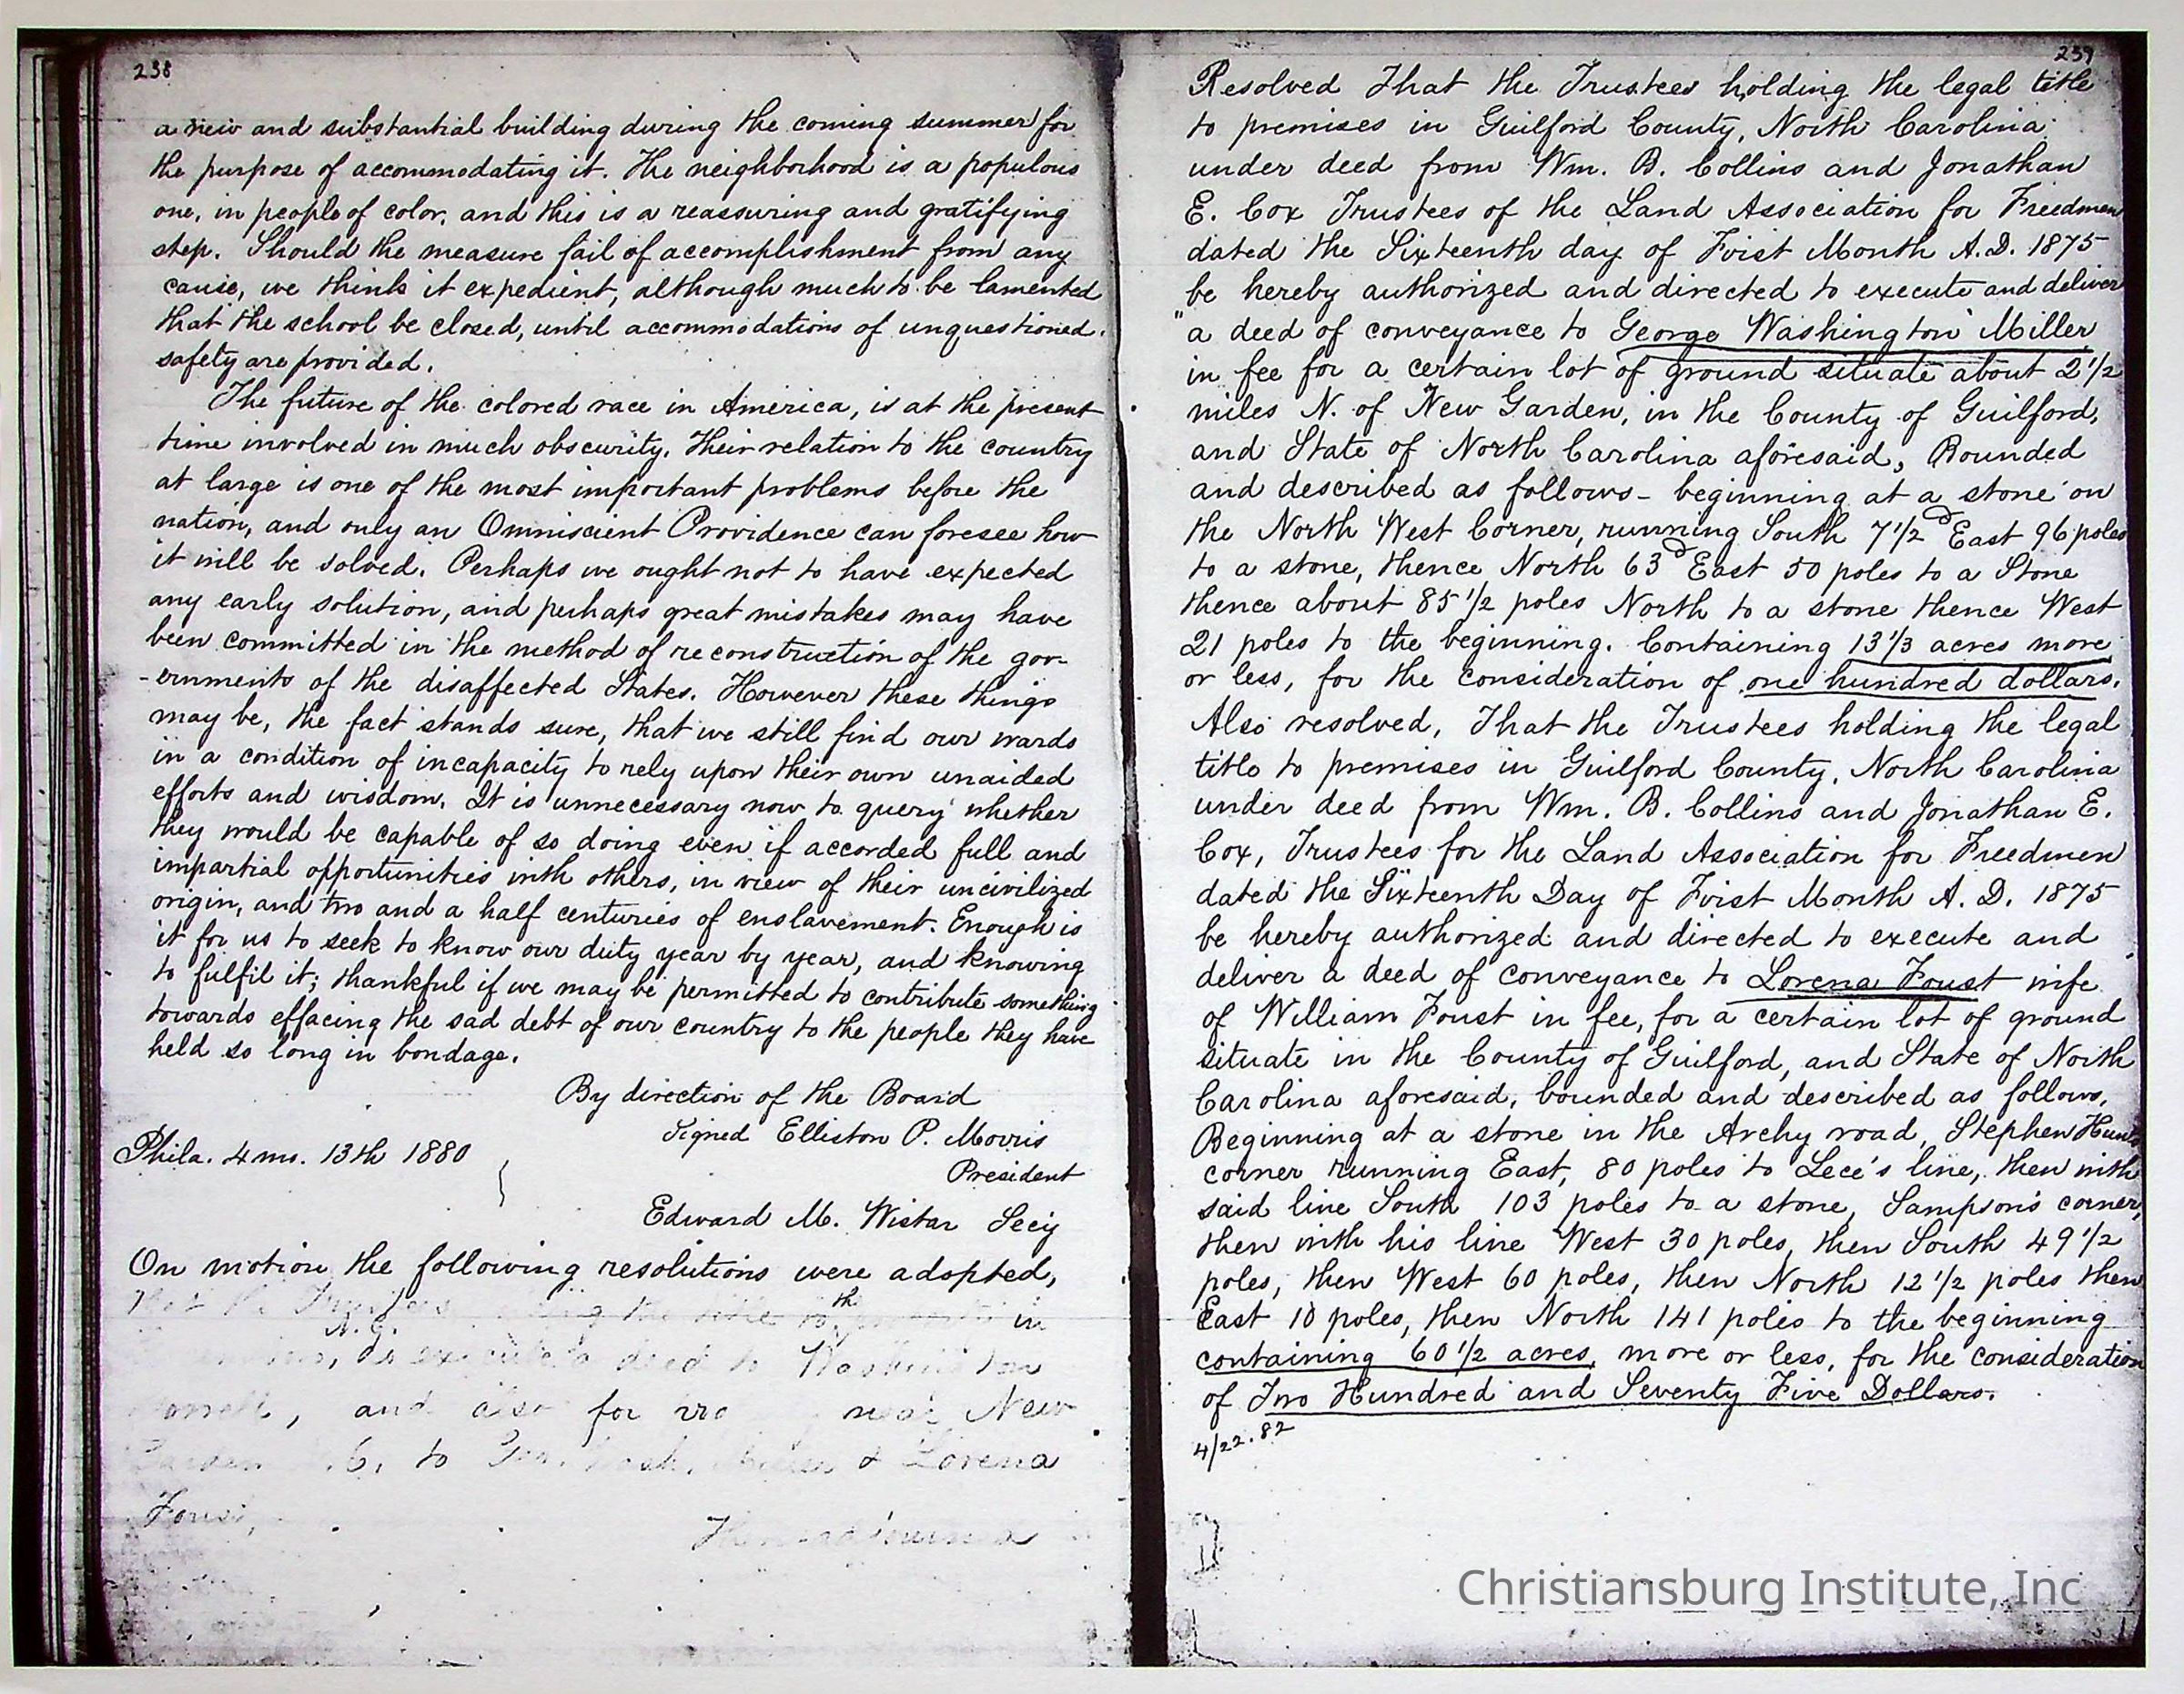 238
a new and substantial building during the coming summer for
the purpose of accommodating it. The neighborhood is a populous
one, in people of color, and this is a reassuring and gratifying
step. Should the measure fail of accomplishment from any
cause, we think it expedient, although much to be lamented
that the school be closed, until accommodations of unquestioned
safety are provided.
The future of the colored race in America, is at the present
time involved in much obscurity. Their relation to the country
at large is one of the most important problems before the
nation, and only an Omniscient Providence can foresee how
it will be solved. Perhaps we ought not to have expected
any early solution, and perhaps great mistakes may have
been committed in the method of reconstruction of the gov-
-ernments of the disaffected States. However these things
may be, the fact stands sure, that we still find our wards
in a condition of incapacity to rely upon their own unaided
efforts and wisdom. It is unnecessary now to query whether
they would be capable of so doing even if accorded full and
impartial opportunities with others, in view of their uncivilized
origin, and two and a half centuries of enslavement. Enough is
it for us to seek to know our duty year by year, and knowing
to fulfil it; thankful if we may be permitted to contribute something
towards effacing the sad debt of our country to the people they have
held so long in bondage.
By direction of the Board
Signed Elliston P. Morris
President
Phila. 4 mo. 13th 1880
Edward M. Wistar Secy
On motion the following resolutions were adopted,
the in
N.C.
execute a deed to Washington
and also for near New
to Geo. Wash. & Lorena
Foust,
Then adjourned
239
Resolved That the Trustees holding the legal title
to premises in Guilford County, North Carolina
under deed from Wm. B. Collins and Jonathan
E. Cox Trustees of the Land Association for Freedmen
dated the Sixteenth day of First Month A.D. 1875
be hereby authorized and directed to execute and deliver
"a deed of conveyance to George Washington Miller
in fee for a certain lot of ground situate about 2 1/2
miles N. of New Garden, in the County of Guilford,
and State of North Carolina aforesaid, Bounded
and described as follows - beginning at a stone on
the North West Corner, running South 7 1/2 d East 96 poles
to a stone, thence North 63 d East 50 poles to a Stone
thence about 85 1/2 poles North to a stone thence West
21 poles to the beginning. Containing 13 1/3 acres more
or less, for the consideration of one hundred dollars.
Also resolved, That the Trustees holding the legal
title to premises in Guilford County, North Carolina
under deed from Wm. B. Collins and Jonathan E.
Cox, Trustees for the Land Association for Freedmen
dated the Sixteenth Day of First Month A. D. 1875
be hereby authorized and directed to execute and
deliver a deed of conveyance to Lorena Foust wife
of William Foust in fee, for a certain lot of ground
situate in the County of Guilford, and State of North
Carolina aforesaid, bounded and described as follows,
Beginning at a stone in the Archy road, Stephen
corner running East, 80 poles to Lece's line, then with
said line South 103 poles to a stone, Sampson's corner,
then with his line West 30 poles, then South 49 1/2
poles, then West 60 poles, then North 12 1/2 poles then
East 10 poles, then North 141 poles to the beginning
containing 60 1/2 acres, more or less, for the consideration
of Two Hundred and Seventy Five Dollars.
4/22.82
Christiansburg Institute, Inc